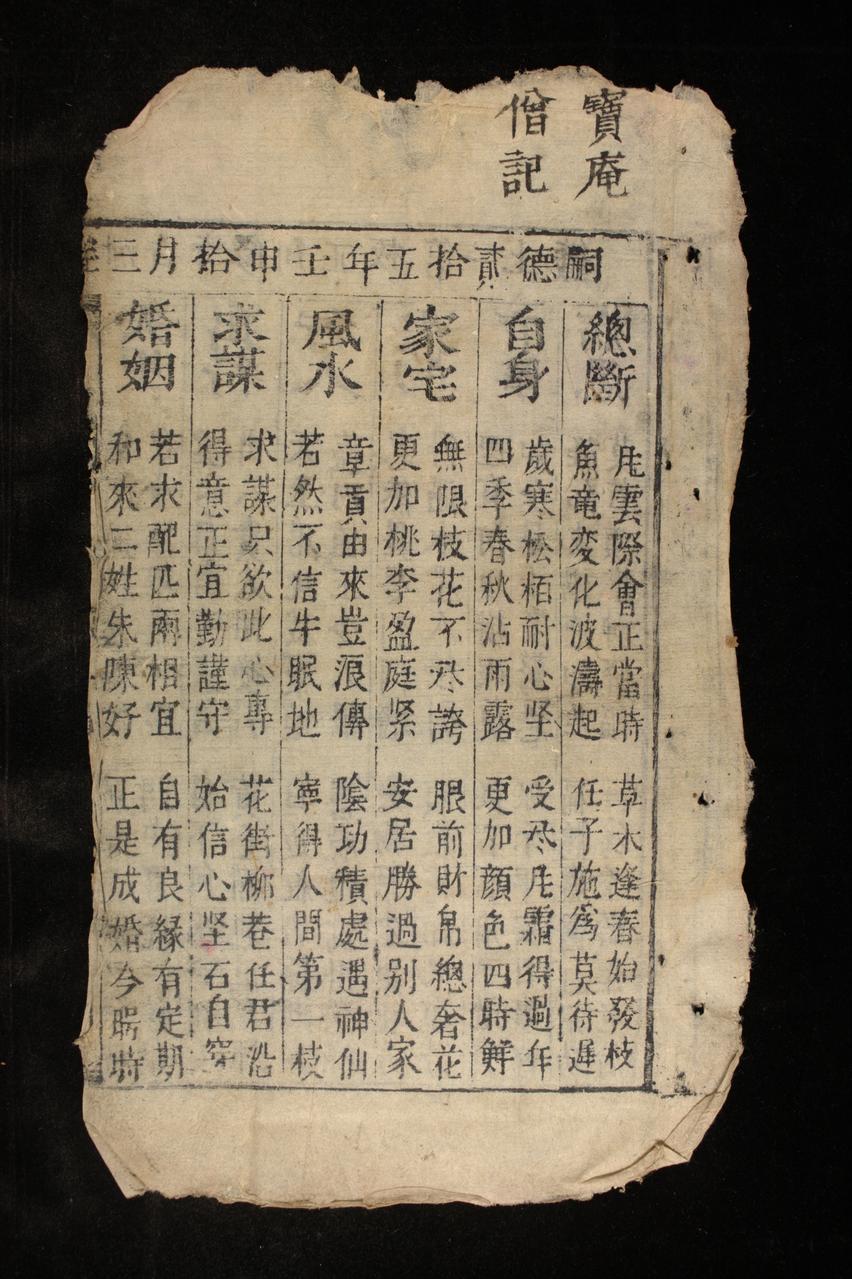 寶庵
僧記
嗣德貳拾五年壬申拾月三
總斷
凨雲際會正當時 草木逢春始發枝
魚竜変化波濤起 任子施爲莫待遲
自身
歲寒松栢耐心坚 受尽凨霜得過年
四季春秋沾雨露 更加顔色四時鮮
家宅
無限枝花不尽誇 眼前財帛總奢花
更加桃李盈庭紧 安居勝過别人家
風水
章貢由來豈浪傳 陰功積處遇神仙
若然不信牛眠地 寧得人間第一枝
求謀
求謀只欲此心專 花街柳巷任君沿
得意正宜勤謹守 始信心坚石自穿
婚姻
若求配匹兩相宜 自有良緣有定期
和來二姓朱陳好 正是成婚今時